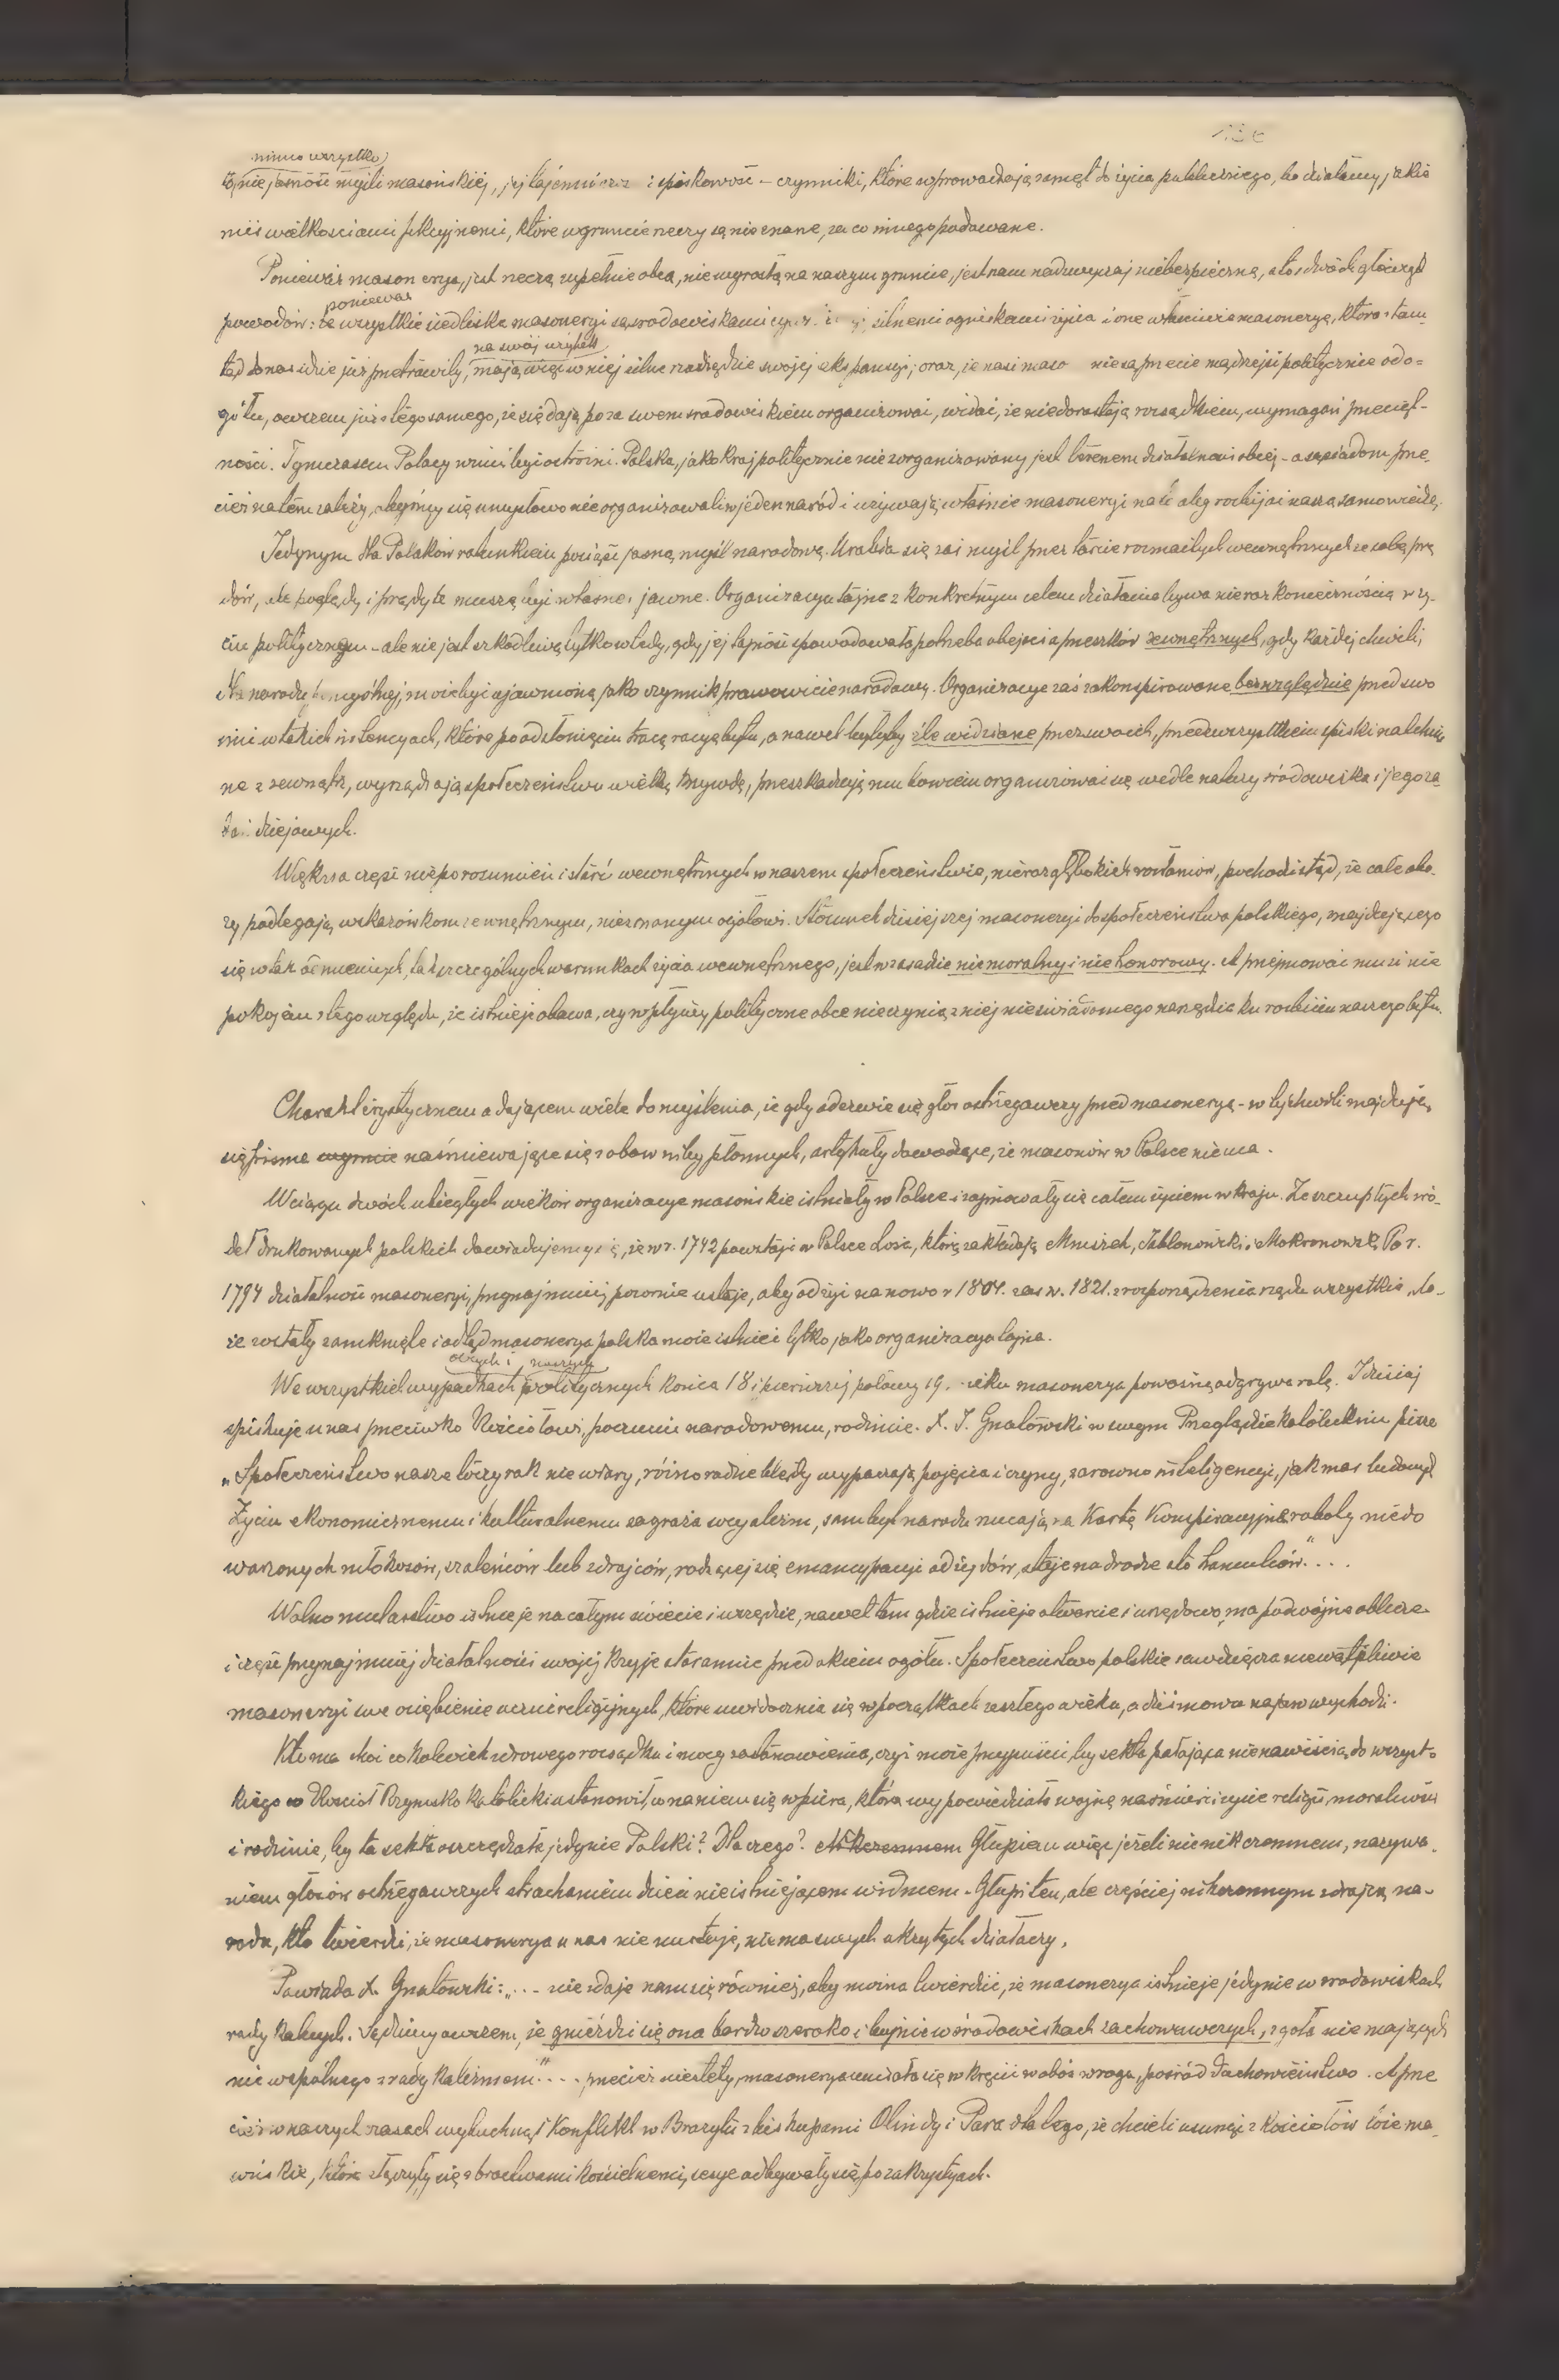 mimo wszystko
nie jasność myśli masońskiej, jej tajemniczość i spiskowość – czynniki, które wprowadzają zamęt do życia publicznego, bo działamy jakie
miś wielkościami fikcyjnemi, które w gruncie rzeczy są nieznane, za co innego podawane.
Ponieważ masonerya, jest rzeczą zupełnie obcą, nie wyrosłą na naszym gruncie, jest nam nadzwyczaj niebezpieczną, a to z dwóch głównych
ponieważ
powodów: że wszystkie siedliska masoneryi są środowiskami silnemi ogniskami życia i one właściwie masoneryę, która stam-
na swój użytek
tąd do nas idzie już przetrawiły, mają więc w niej silne narzędzie swojej ekspansyi; oraz, że nasi maso nie są przecie mądrzejsi politycznie od o=
gółu, owszem już z tego samego, że się dają poza swem środowiskiem organizować, widać, że nie dorastają rozsądkiem, wymagań przecięt-
ności. Tymczasem Polacy winni być ostrożni. Polska, jako kraj politycznie niezorganizowany jest terenem działalności obcej – a sąsiadom prze-
cież na tem zależy, abyśmy się umysłowo nie organizowali w jeden naród i używają właśnie masoneryi na to aby rozbijać naszą samowiedzę.
Jedynym dla Polaków ratunkiem posiąść jasną myśl narodową. Urabia się zaś myśl przez tarcie rozmaitych wewnętrznych ze sobą prą
dów, ale poglądy i prądy te muszą być własne i jawne. Organizacya tajna z konkretnym celem działania bywa nieraz koniecznością w ży-
ciu politycznem – ale nie jest szkodliwą tylko wtedy, gdy jej tajność spowodowała potrzeba obejścia przeszkód zewnętrznych, gdy każdej chwili,
dla narodu może być ujawnioną jako czynnik prawowicie narodowy. Organizacye zaś zakonspirowane bezwzględnie przed swo
imi w takich instancyach, które po odsłonięciu tracą racyę bytu, a nawet byłyby źle widziane przez swoich, przedewszystkiem spiski natchnio
ne z zewnątrz, wyrządzają społeczeństwu wielką krzywdę, przeszkadzają mu bowiem organizować się wedle natury środowiska i jego za
dań dziejowych.
Większa część nieporozumień i starć wewnętrznych w naszem społeczeństwie, nieraz głębokich rozłamów, pochodzi stąd, że całe obo-
zy podlegają wskazówkom zewnętrznym, nieznanym ogółowi. Stosunek dzisiejszej masoneryi do społeczeństwa polskiego, znajdującego
się w tak odmiennych, tak szczególnych warunkach życia wewnętrznego, jest w zasadzie niemoralny i niehonorowy. A przejmować musi nie
pokojem z tego względu, że istnieje obawa, czy wpływy polityczne obce nie czynią z niej nieświadomego narzędzia ku rozbiciu naszego bytu.
Charakterystycznem a dającem wiele do myślenia, że gdy odezwie się głos ostrzegawczy przed masoneryą – w tej chwili znajdują
się pisma naśmiewające się z obaw niby płonnych, artykuły dowodzące, że masonów w Polsce niema.
W ciągu dwóch ubiegłych wieków organizacye masońskie istniały w Polsce i zajmowały się całem życiem w kraju. Ze szczupłych źró-
deł drukowanych polskich dowiadujemy się, że w r. 1742 powstaje w Polsce Loża, którą zakładają Mniszek, Jabłonowski i Mokronowski. Po r.
1794 działalność masoneryi, przynajmniej pozornie ustaje, aby odżyć na nowo r 1804. zaś r. 1821. z rozporządzenia rządu wszystkie lo-
że zostały zamknięte i odtąd masonerya polska może istnieć tylko jako organizacya tajna.
obcych i naszych
We wszystkich wypadkach politycznych końca 18 i pierwszej połowy 19. wieku masonerya poważną odgrywa rolę. I dzisiaj
spiskuje u nas przeciwko Kościołowi, poczuciu narodowemu, rodzinie. X. J. Gnatowski w swym Przeglądzie katolickim pisze
„Społeczeństwo nasze toczy rak niewiary, różnorodne błędy wypaczają pojęcia i czyny, zarówno inteligencyi, jak mas ludowych
Życiu ekonomicznemu i kulturalnemu zagraża socyalizm, sam byt narodu rzucają na kartę konspiracyjne roboty niedo
warzonych młokosów, szaleńców lub zdrajców, rodzącej się emancypacyi od żydów, staje na drodze sto hamulców."...
Wolnomularstwo istnieje na całym świecie i wszędzie, nawet tam gdzie istnieje otwarcie i urzędowo, ma podwójne oblicze
i część przynajmniej działalności swojej kryje starannie przed okiem ogółu. Społeczeństwo polskie zawdzięcza niewątpliwie
masoneryi swe oziębienie uczuć religijnych, które uwidocznia się w początkach zeszłego wieku, a dziś znowu na jaw wychodzi.
Kto ma choć cokolwiek zdrowego rozsądku i mocy zastanowienia, czyż może przypuścić, by sekta pałająca nienawiścią do wszyst-
kiego co Kościół Rzymsko Katolicki ustanowił, co na nim się wspiera, która wypowiedziała wojnę na śmierć i życie religii, moralności
i rodzinie, by ta sekta oszczędzała jedynie Polski? Dlaczego? Nikczemnem Głupiem więc jeżeli nie nikczemnem, nazywa-
niem głosów ostrzegawczych strachaniem dzieci nieistniejącem widmem. Głupi ten, ale częściej nikczemnym zdrajcą na-
rodu, kto twierdzi, że masonerya u nas nie nurtuje, nie ma swych ukrytych działaczy.
Powiada X. Gnatowski: „... nie zdaje nam się również, aby można twierdzić, że masonerya istnieje jedynie w środowiskach
radykalnych. Sądzimy owszem, że gnieździ się ona bardzo szeroko i bujnie w środowiskach zachowawczych, zgoła nie mających
nic wspólnego z radykalizmem"... przecież niestety, masonerya umiała się wkręcić w obóz wroga, pośród duchowieństwo. A prze
cież w naszych czasach wybuchnął konflikt w Brazylii z biskupami Olindy i Para dlatego, że chcieli usunąć z kościołów loże ma-
sońskie, które złączyły się z bractwami kościelnemi, sesye odbywały się po zakrystyach.